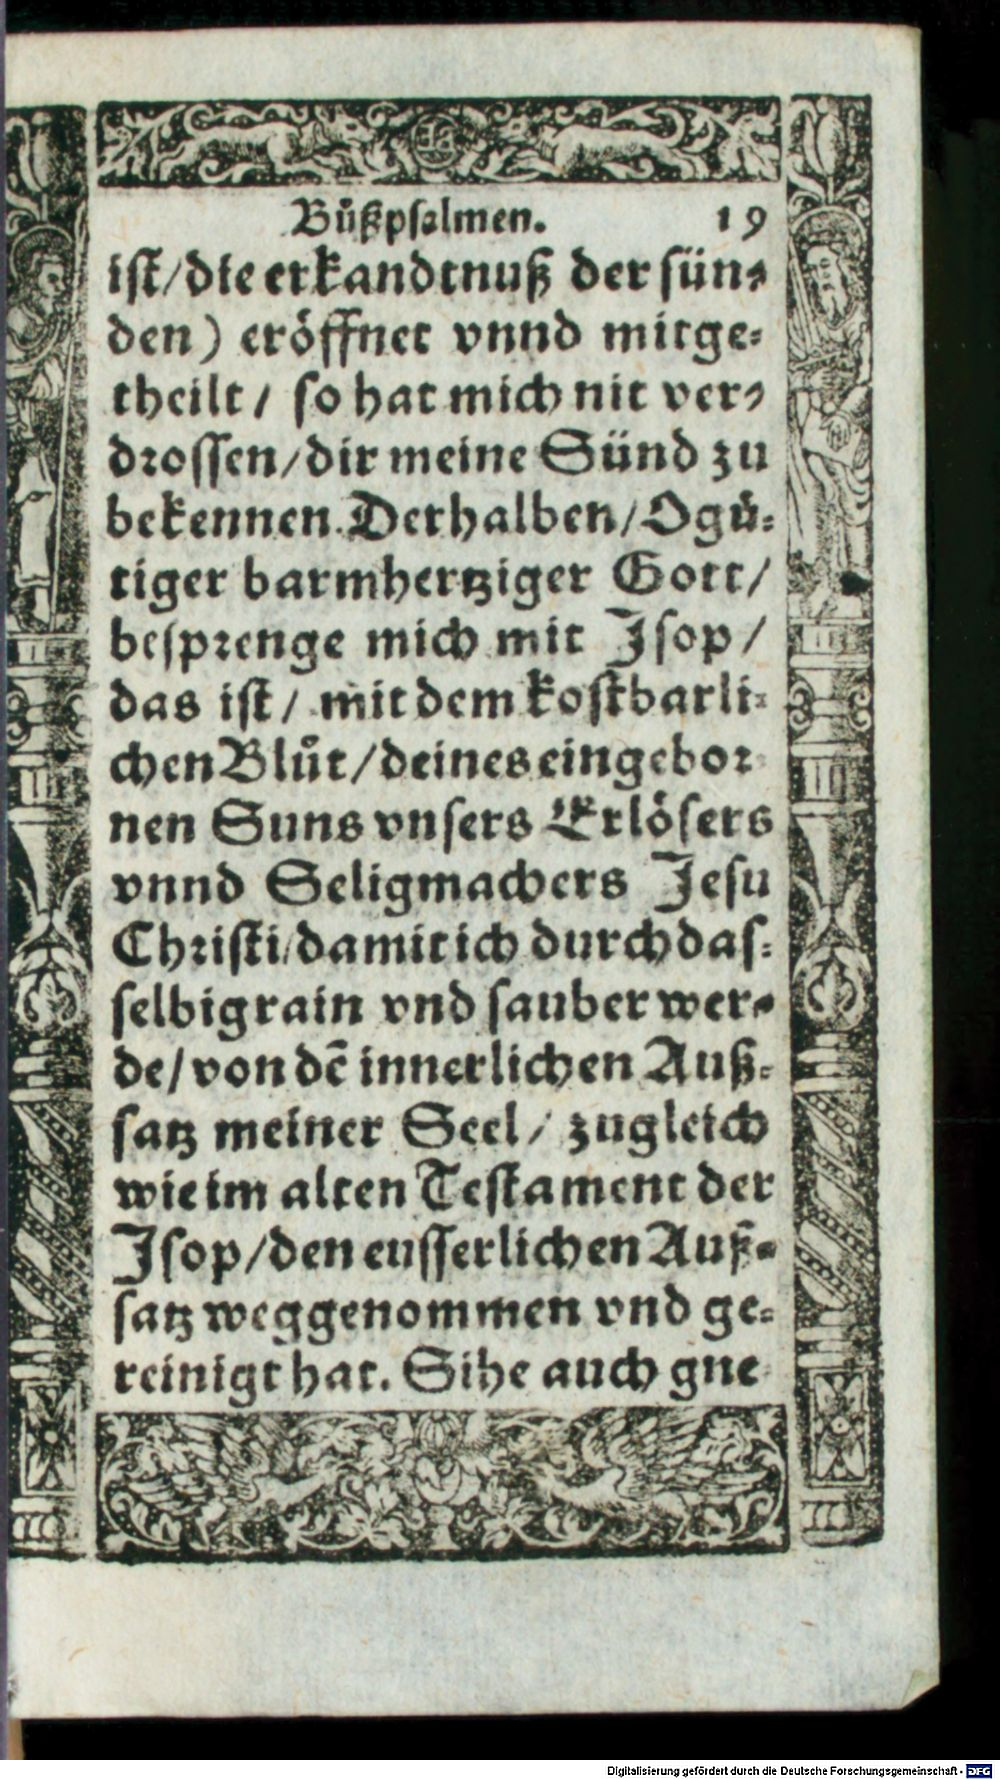 Buͤßpsalmen. 19
ist/die erkandtnuß der sün⸗
den) eröffnet vnnd mitge⸗
theilt/ so hat mich nit ver⸗
drossen/dir meine Sünd zu
bekennen. Derhalben/O guͤ⸗
tiger barmhertziger Gott/
besprenge mich mit Isop/
das ist/ mit dem kostbarli⸗
chen Bluͦt/deines eingebor⸗
nen Suns vnsers Erlösers
vnnd Seligmachers Jesu
Christi/damit ich durch das⸗
selbig rain vnd sauber wer⸗
de/von dē innerlichen Auß⸗
satz meiner Seel/ zugleich
wie im alten Testament der
Isop/den eusserlichen Auß⸗
satz weggenommen vnd ge⸗
reinigt hat. Sihe auch gne
Digitalisierung gefördert durch die Deutsche Forschungsgemeinschaft - DFG